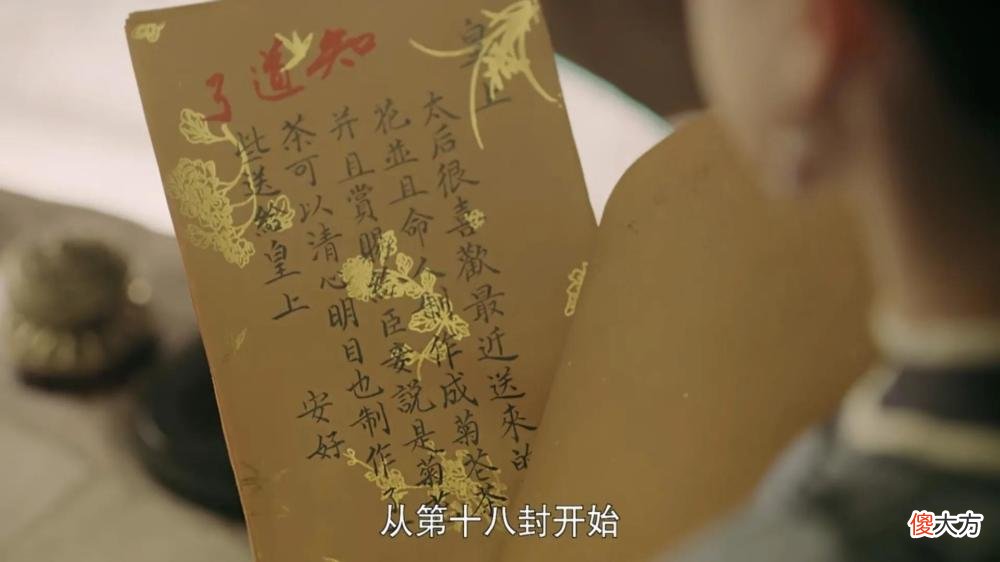 知道了
皇上
太后很喜歡最近送來的
花並且命人制作成菊花茶
并且賞賜給臣妾說是菊花
茶可以清心明目也制作了
些送給皇上 安好
从第十八封开始
傻大方